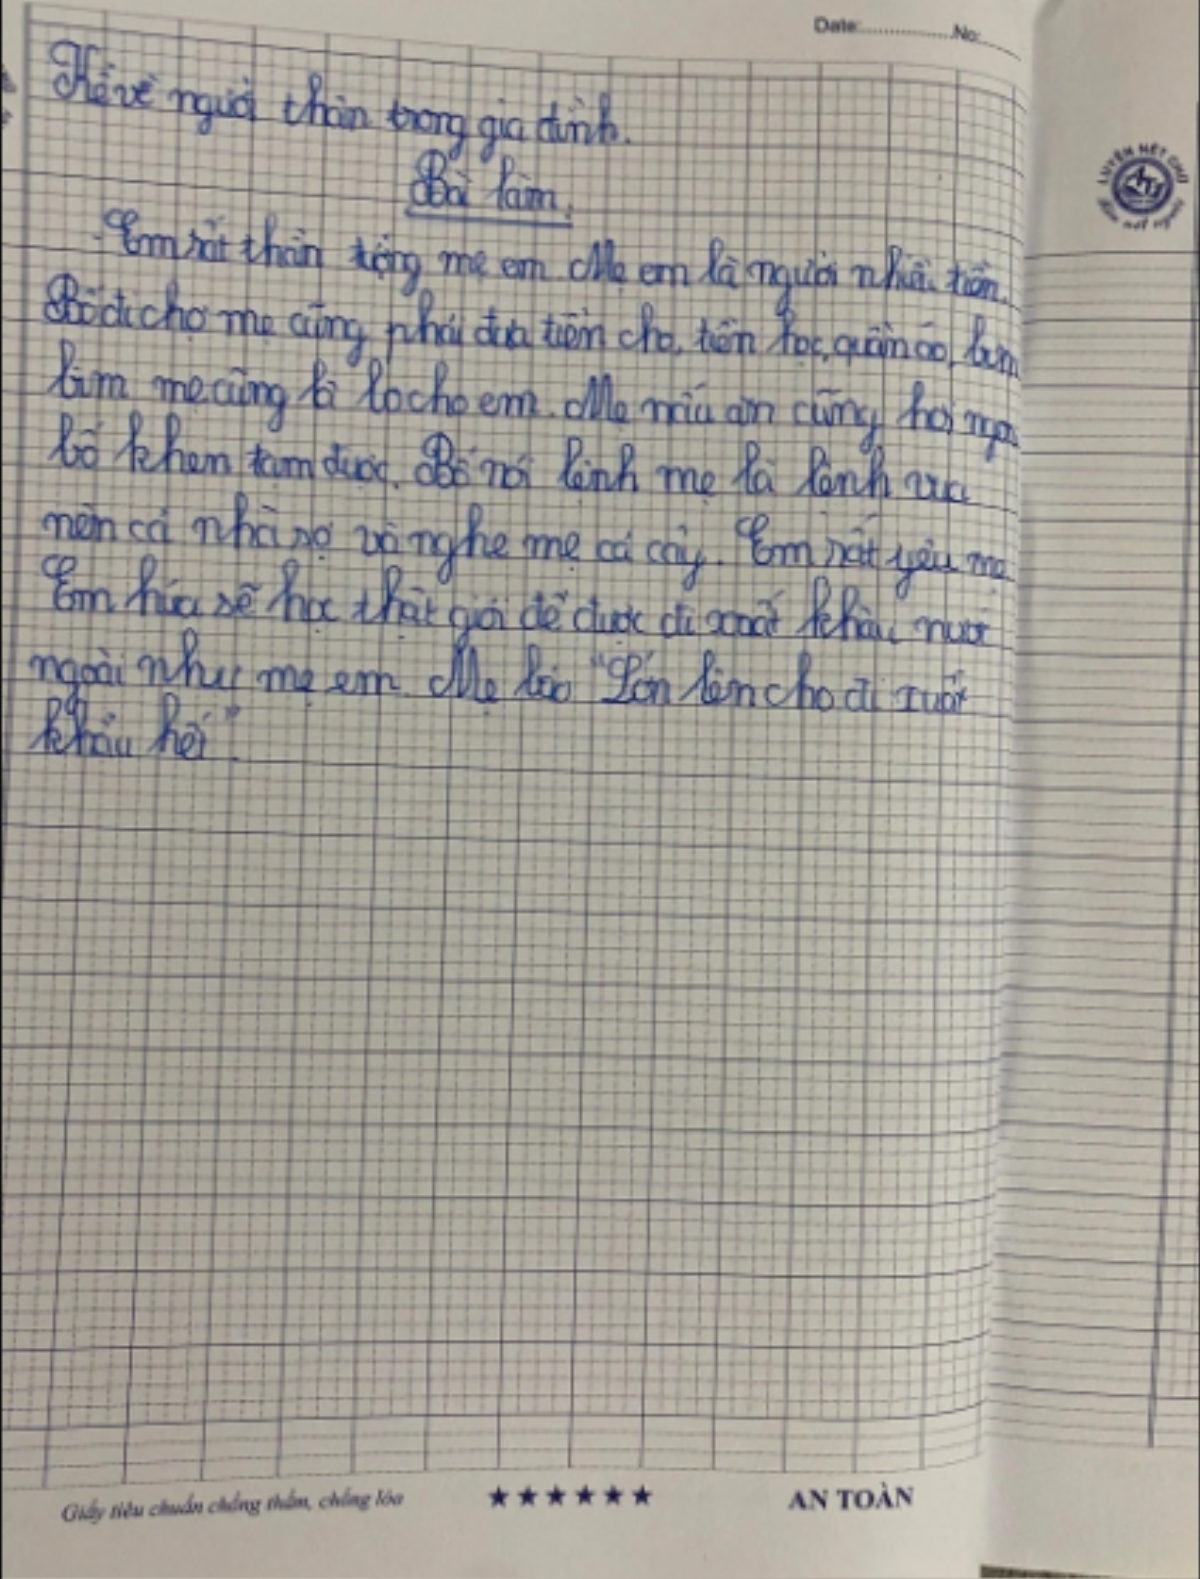 Date:..................No:........
Kể về người thân trong gia đình.
Bài làm.
Em rất thần tượng mẹ em. Mẹ em là người nhiều tiền.
Bố đi chợ mẹ cũng phải đưa tiền cho, tiền học, quần áo, bim
bim mẹ cũng lo cho em. Mẹ nấu ăn cũng hơi ngon
bố khen tạm được. Bố nói lệnh mẹ là lệnh vua
nên cả nhà sợ và nghe mẹ cả cây. Em rất yêu mẹ
Em hứa sẽ học thật giỏi để được đi xuất khẩu nước
ngoài như mẹ em. Mẹ bảo "Lớn lên cho đi xuất
khẩu hết"
LUYỆN NÉT CHỮ
Giấy tiêu chuẩn chống thấm, chống lóa
★★★★★★
AN TOÀN